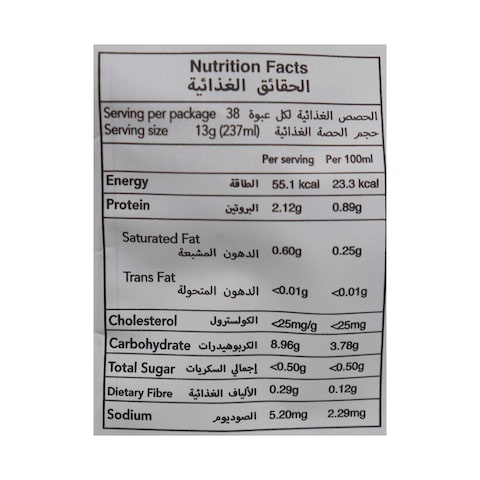 Nutrition Facts
الحقائق الغذائية
Serving per package 38 الحصص الغذائية لكل عبوة
Serving size 13g (237ml) حجم الحصة الغذائية
Per serving Per 100ml
Energy الطاقة 55.1 kcal 23.3 kcal
Protein البروتين 2.12g 0.89g
Saturated Fat
الدهون المشبعة 0.60g 0.25g
Trans Fat
الدهون المتحولة <0.01g <0.01g
Cholesterol الكولسترول <25mg/g <25mg
Carbohydrate الكربوهيدرات 8.96g 3.78g
Total Sugar إجمالي السكريات <0.50g <0.50g
Dietary Fibre الألياف الغذائية 0.29g 0.12g
Sodium الصوديوم 5.20mg 2.29mg